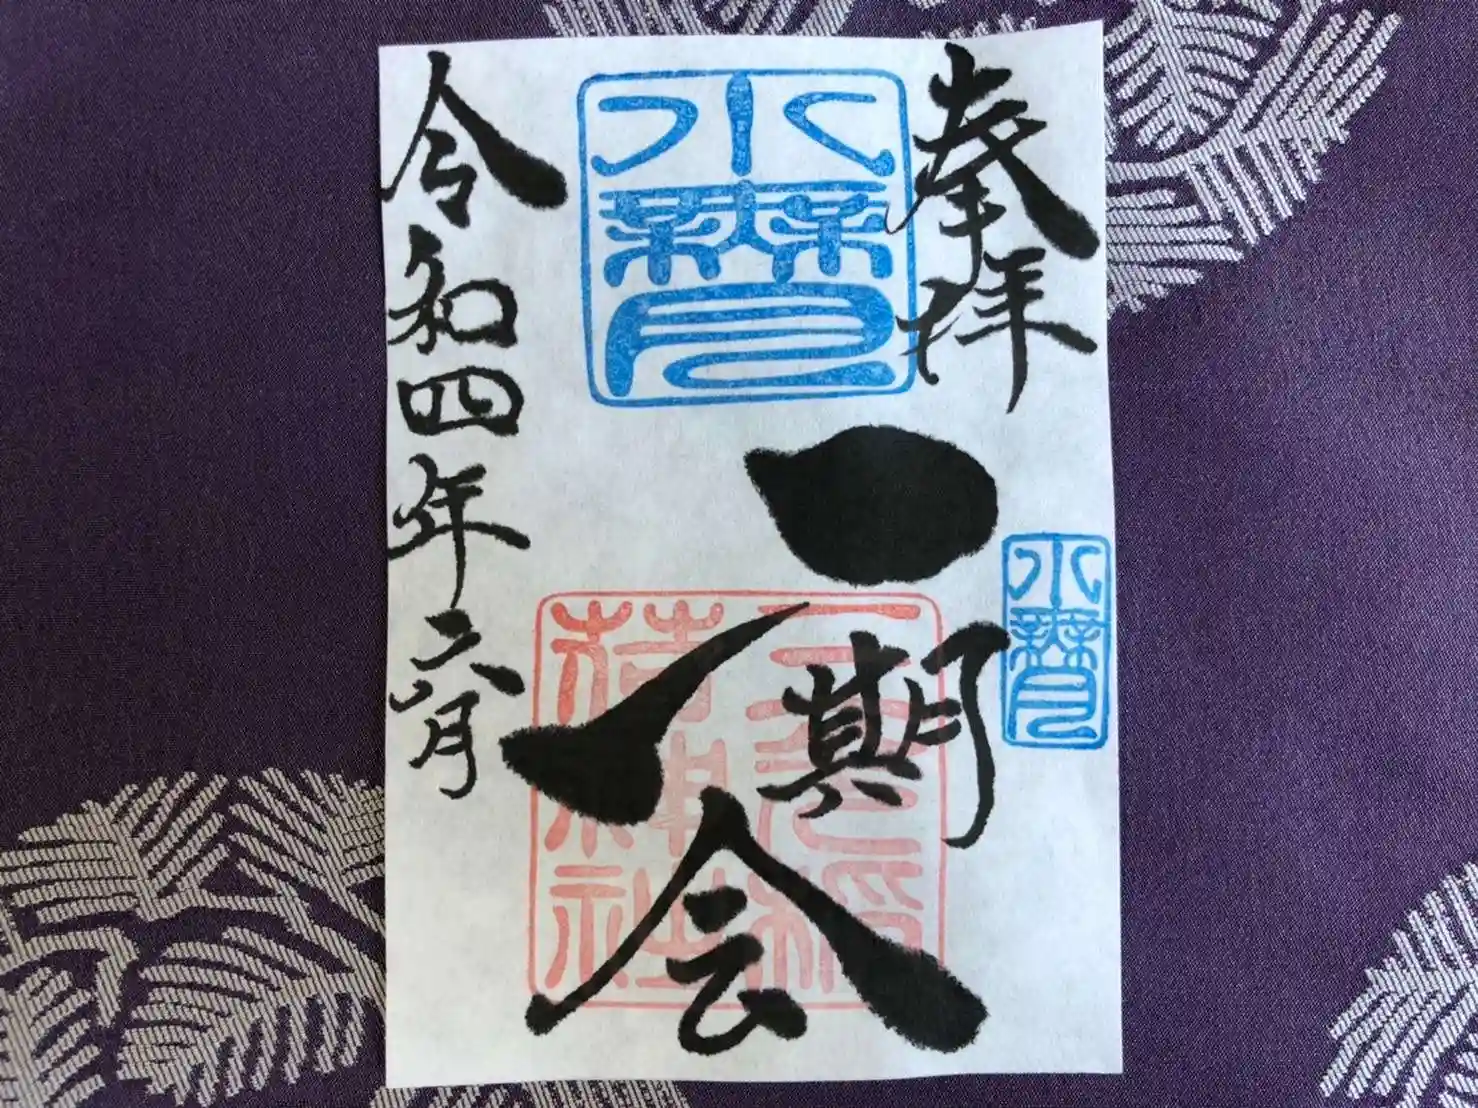 奉拝
水無月
水無月
一期
一会
荷神社
令和四年六月